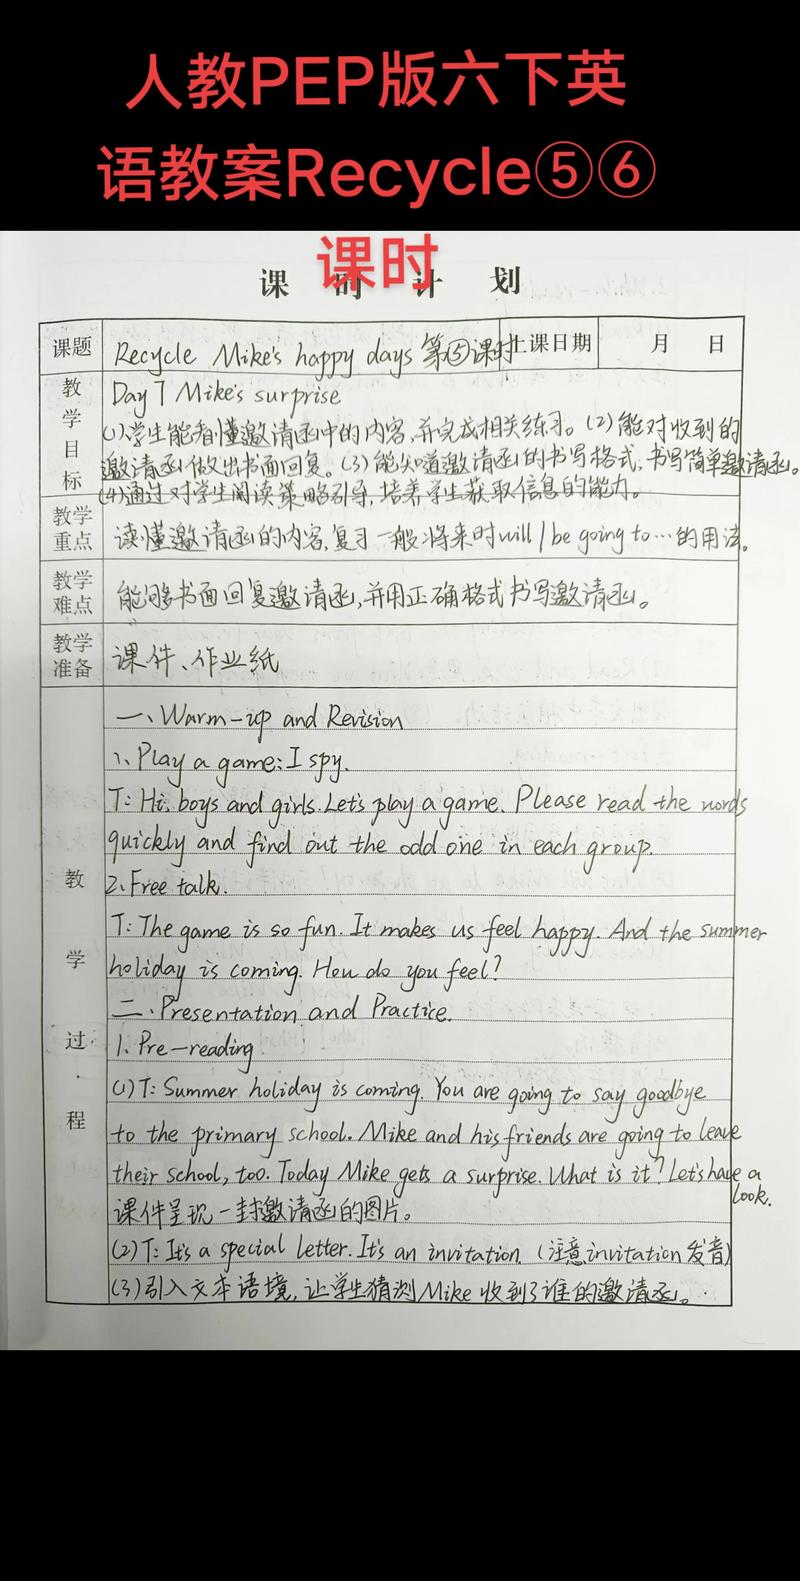 人教PEP版六下英
语教案Recycle⑤⑥
课时
课时计划
课题 Recycle Mike's happy days 第⑤课时 上课日期 月 日
教学目标
Day 7 Mike's surprise
(1)学生能看懂邀请函中的内容,并完成相关练习。(2)能对收到的
邀请函做出书面回复。(3)能知道邀请函的书写格式,书写简单邀请函。
(4)通过对学生阅读策略引导,培养学生获取信息的能力。
教学重点 读懂邀请函的内容,复习一般将来时will/be going to…的用法。
教学难点 能够书面回复邀请函,并用正确格式书写邀请函。
教学准备 课件、作业纸
教学过程
一、Warm-up and Revision
1、Play a game: I spy.
T: Hi. boys and girls. Let's play a game. Please read the words
quickly and find out the odd one in each group.
2. Free talk.
T: The game is so fun. It makes us feel happy. And the summer
holiday is coming. How do you feel?
二、Presentation and Practice.
1. Pre-reading
(1) T: Summer holiday is coming. You are going to say goodbye
to the primary school. Mike and his friends are going to leave
their school, too. Today Mike gets a surprise. What is it? Let's have a
look.
课件呈现一封邀请函的图片。
(2) T: It's a special letter. It's an invitation. (注意invitation发音)
(3)引入文本语境,让学生猜测Mike收到了谁的邀请函。